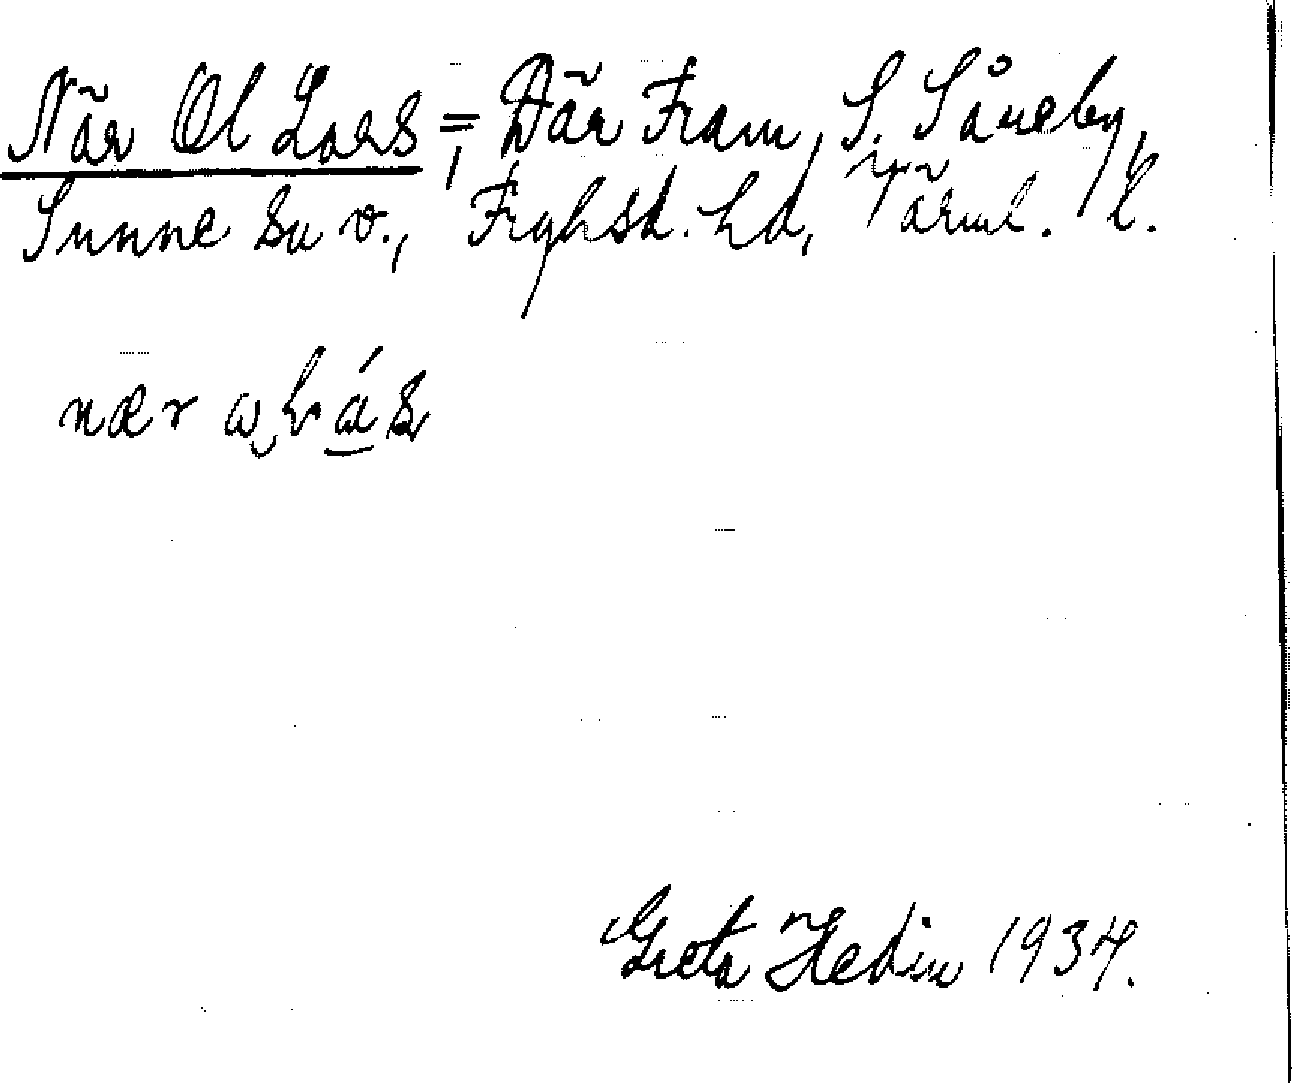 När Ol Lars = Där Fram, S. Såneby,
Sunne sn v., Fryksd. hd, Värml. l.
nær
Greta Hedin 1934.